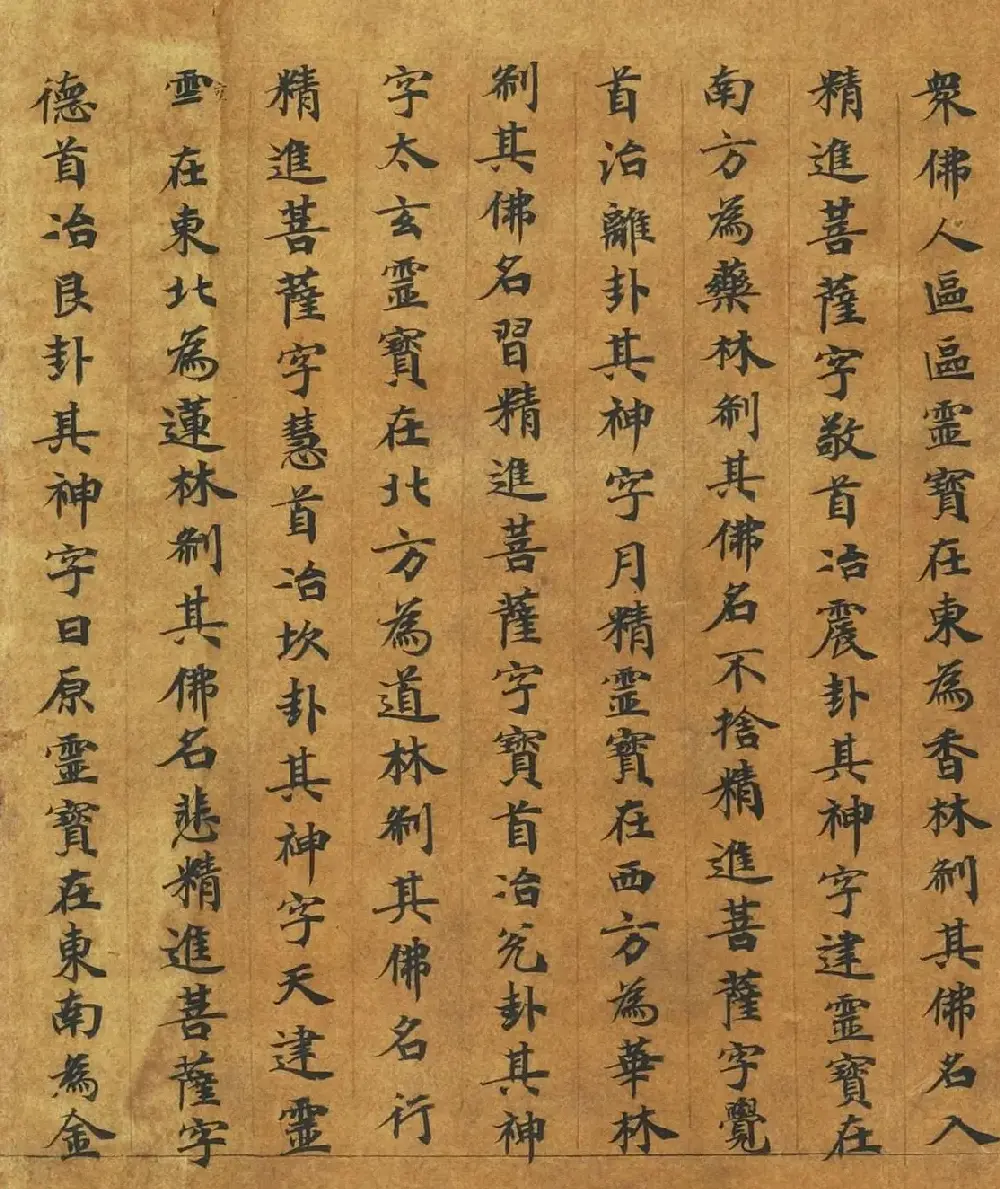 衆佛人區區靈寶在東為香林刹其佛名入
精進菩薩字敬首治震卦其神字建靈寶在
南方為藥林刹其佛名不捨精進菩薩字覺
首治離卦其神字月精靈寶在西方為華林
刹其佛名習精進菩薩字寶首治兊卦其神
字太玄靈寶在北方為道林刹其佛名行
精進菩薩字慧首治坎卦其神字天建靈
在東北為蓮林刹其佛名悲精進菩薩字
德首治艮卦其神字曰原靈寶在東南為金